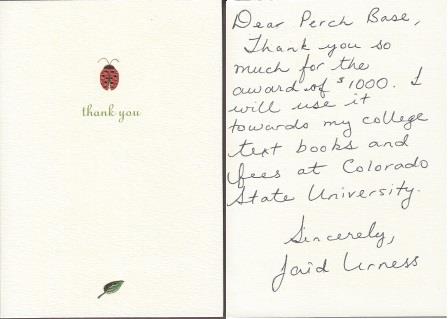 thank you
Dear Perch Base,
Thank you so
much for the
award of $1000. I
will use it
towards my college
text books and
fees at Colorado
State University.
Sincerely,
Jaid Urness